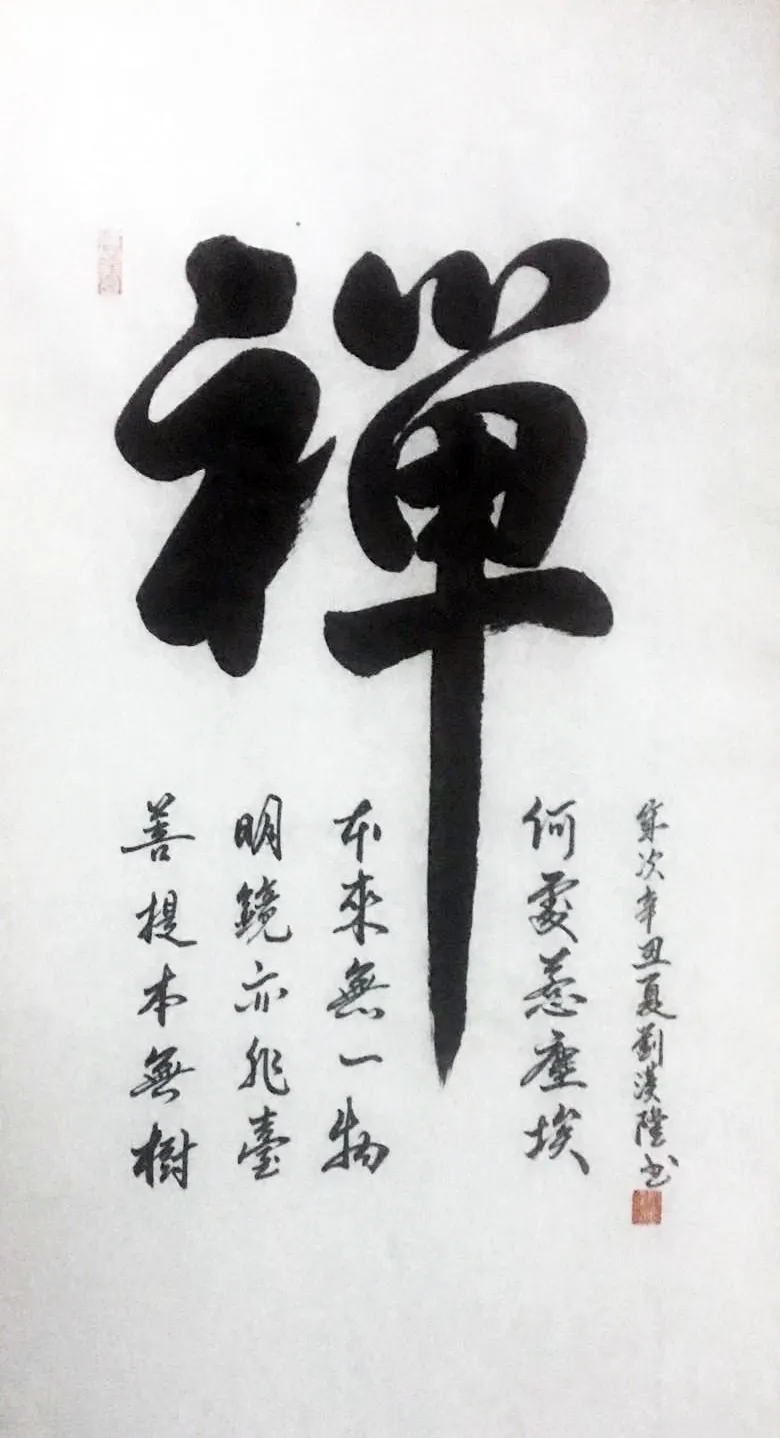 禪
善提本無樹
明鏡亦非臺
本來無一物
何處惹塵埃
歲次辛丑夏劉漢陞书